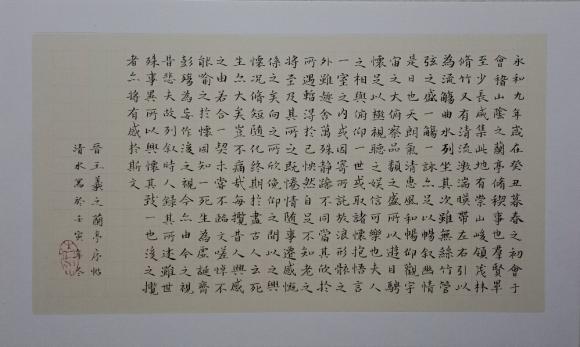 永和九年歲在癸丑暮春之初會于
會稽山陰之蘭亭脩稧事也群賢畢
至少長咸集此地有崇山峻領茂林
脩竹又有清流激湍暎帶左右引以
為流觴曲水列坐其次雖無絲竹管
弦之盛一觴一詠亦足以暢敘幽情
是日也天朗氣清惠風和暢仰觀宇
宙之大俯察品類之盛所以遊目騁
懷足以極視聽之娛信可樂也夫人
之相與俯仰一世或取諸懷抱悟言
一室之內或因寄所託放浪形骸之
外雖趣舍萬殊靜躁不同當其欣於
所遇暫得於己怏然自足不知老之
將至及其所之既惓情隨事遷感慨
係之矣向之所欣俛仰之間以之興
懷況脩短隨化終期於盡古人云死
生亦大矣豈不痛哉每攬昔人興感
之由若合一契未嘗不臨文嗟悼不
能喻之於懷固知一死生為虛誕齊
彭殤為妄作後之視今亦由今之視
昔悲夫故列敘時人錄其所述雖世
殊事異所以興懷其致一也後之攬
者亦將有感於斯文
晉王羲之蘭亭序帖
清水寫於壬寅年冬